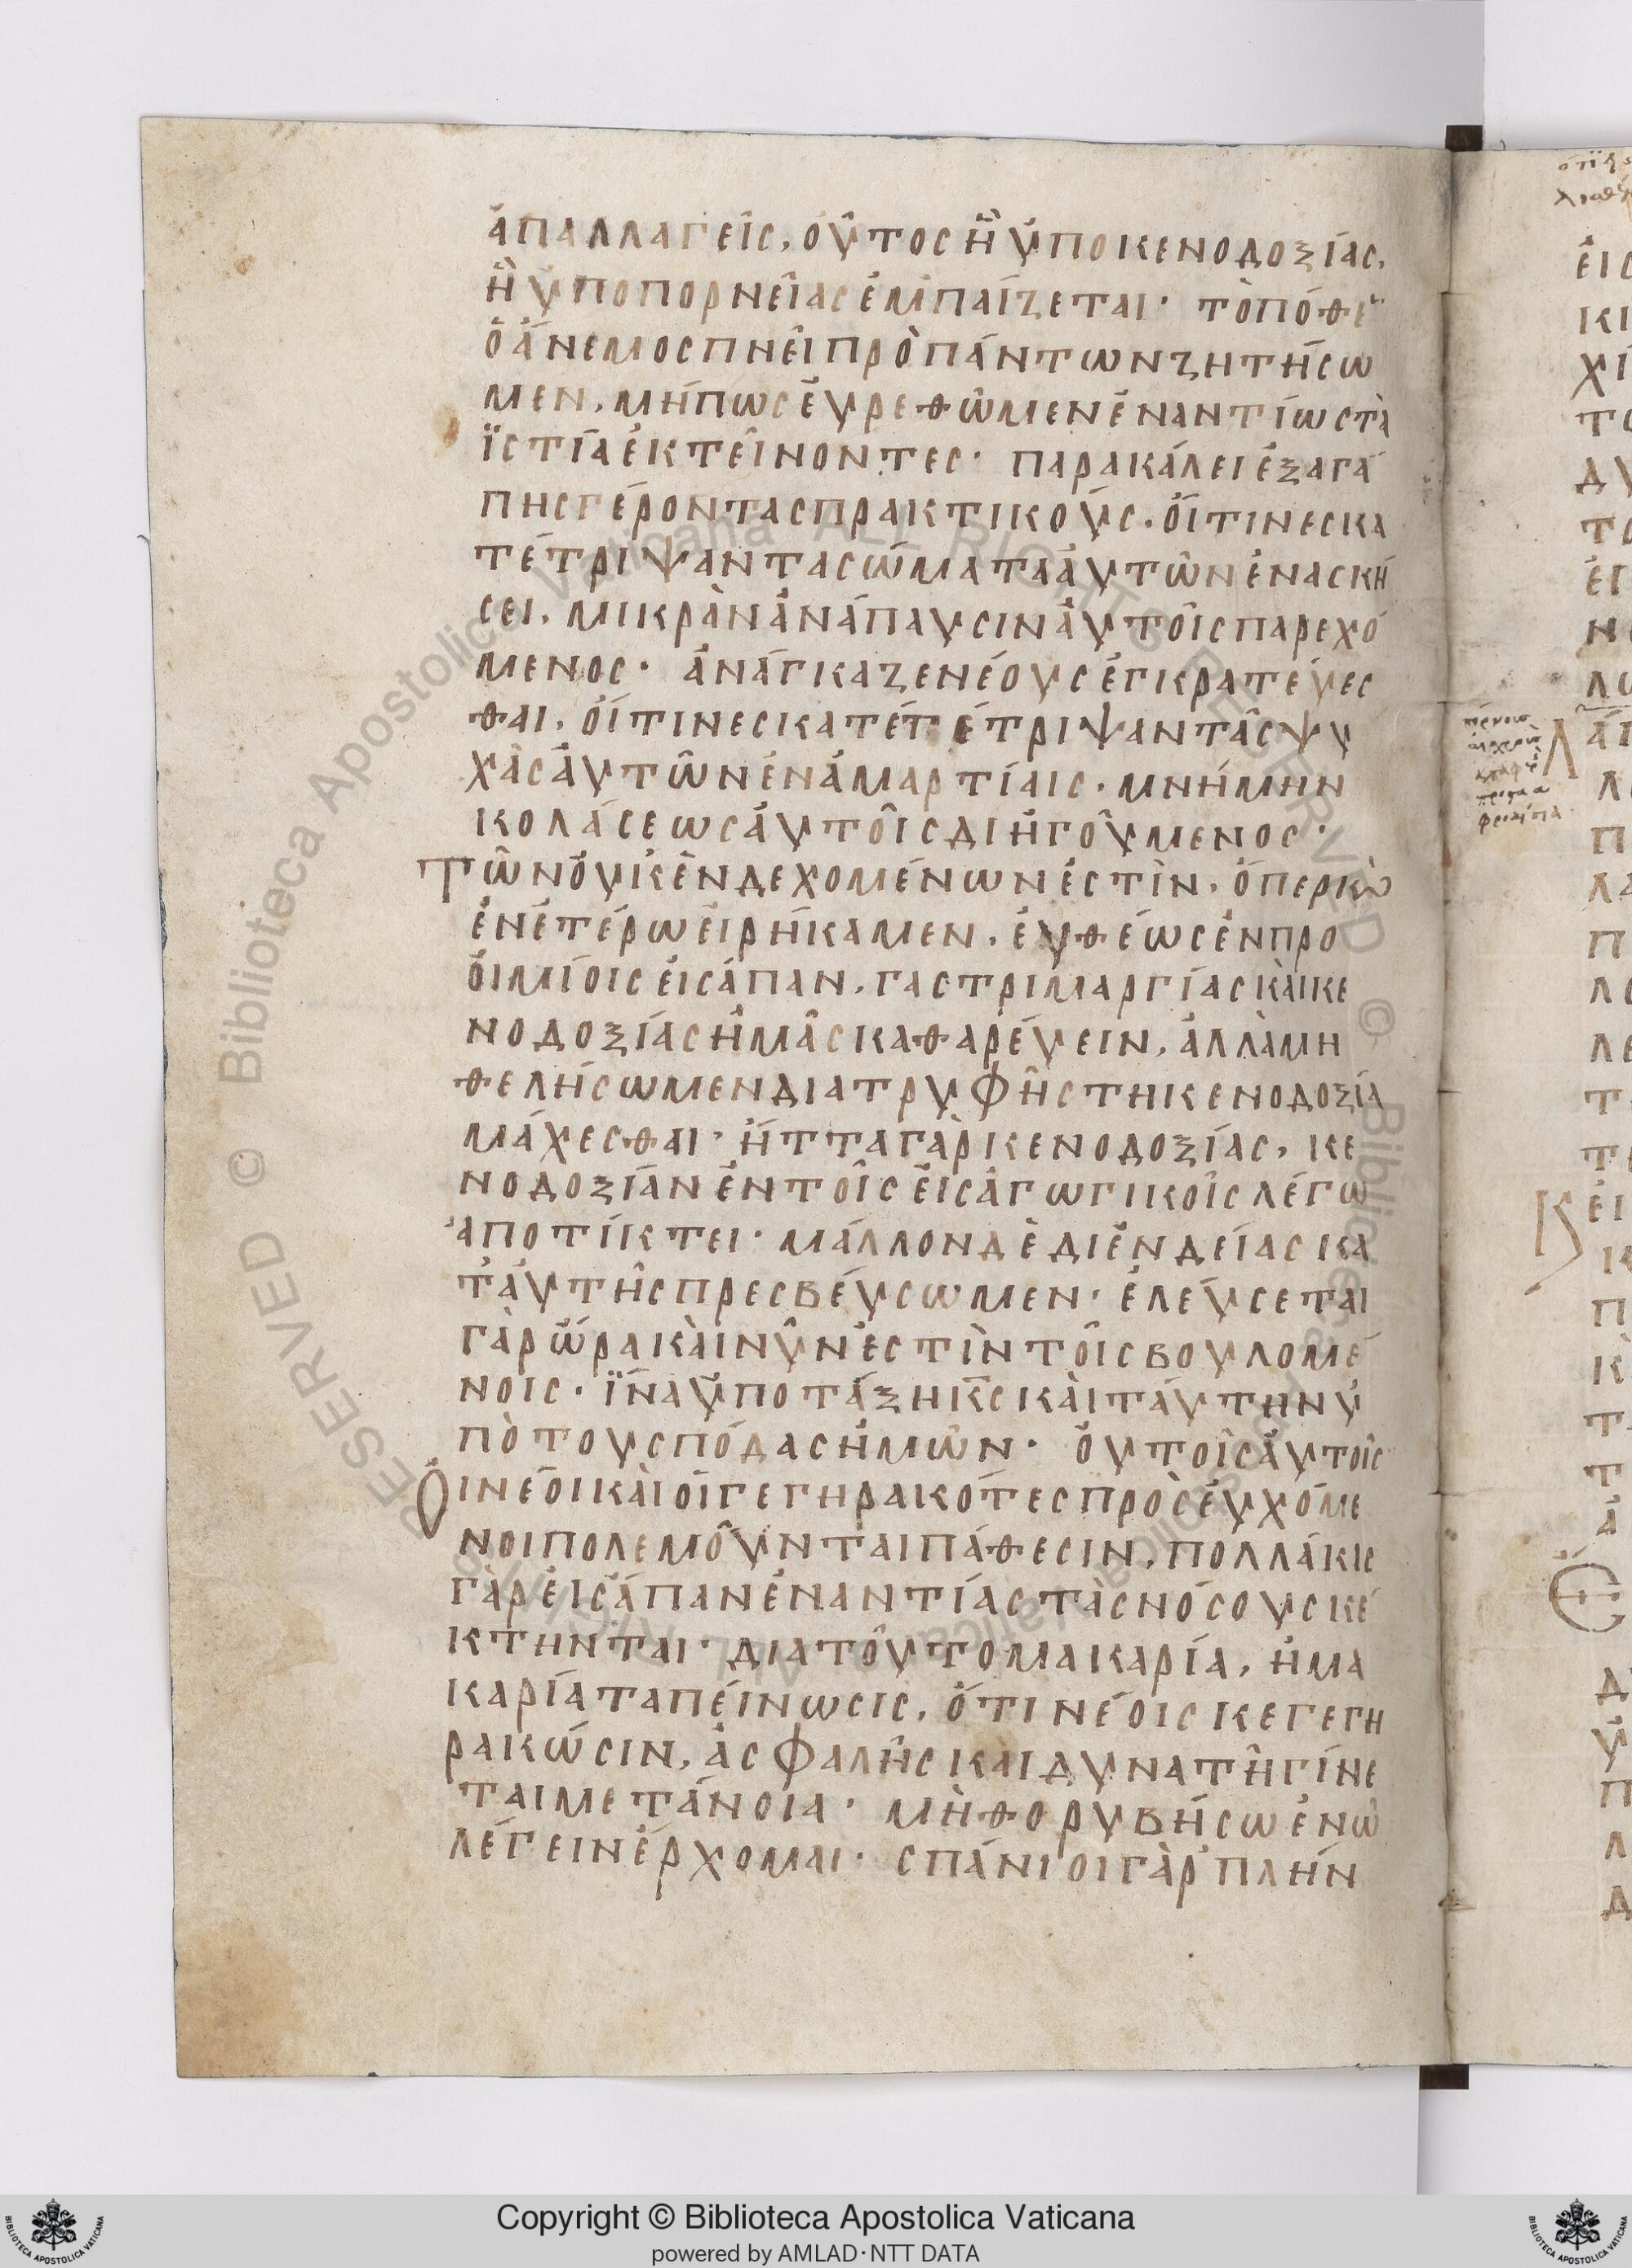 ἀπαλλαγεὶς, οὗτος ἢ ὑπο κενοδοξίας,
ἢ ὑπο πορνείας ἐμπαίζεται· τὸ πόθε̈
ὁ ἄνεμος πνεῖ πρὸ πάντων ζητήσω
μεν, μήπως εὑρεθῶμεν ἐναντίως τὰ
ϊστία ἐκτείνοντες· παρακάλει ἐξ αγά
πης γέροντας πρακτικούς. οἵτινες κα
τέτριψαν τα σώματα ἀυτῶν ἐν ασκή
σει, μικρὰν ἀνάπαυσιν ἀυτοῖς παρεχό
μενος· ἀνάγκαζε νέους ἐγκρατεύες
θαι, οἵτινες κατέτ έτριψαν τὰς ψυ
χὰς ἀυτῶν ἐν ἁμαρτίαις. μνήμην
κολάσεως ἀυτοῖς διηγούμενος·
Τῶν ὀυκ ἐνδεχομένων ἐστὶν, ὅπερ κὰ
ἐν ἑτέρω ἐιρήκαμεν, ἐυθέως ἐν προ
οιμίοις ἐισάπαν, γαστριμαργίας κὰι κε
νοδοξίας ἡμᾶς καθαρέυειν, ἀλλὰ μη
θελήσωμεν δια τρυφῆς τη κενοδοξία
μάχεσθαι· ἥττα γὰρ κενοδοξίας, κε
νοδοξίαν ἐν τοῖς ἐισαγωγικοῖς λέγω
ἀποτίκτει· μάλλον δὲ δι ἐνδείας κα
τ ἀυτῆς πρεσβέυσωμεν· ἐλέυσεται
γὰρ ὥρα κὰι νῦν ἐστὶν τοῖς βουλομέ
νοις· ϊνα ὑποτάξη κ̅ς κὰι τάυτην ὑ
πὸ τους πόδας ἡμῶν· ὀυ τοῖς ἀυτοῖς
Ὁι νέοι κὰι οἱ γεγηρακότες προσευχόμε
νοι πολεμοῦνται πάθεσιν, πολλάκις
γὰρ ἐισάπαν ἐναντίας τὰς νόσους κέ
κτηνται· δια τοῦτο μακαρία, ἡ μα
καρία ταπείνωσις, ὅτι νέοις κε γεγη
ρακώσιν, ἀσφαλὴς καὶ δυνατὴ γίνε
ται μετάνοια· μὴ θορυβήσω ἐν ὧ
λέγειν ἔρχομαι· σπάνιοι γὰρ πλήν
Copyright © Biblioteca Apostolica Vaticana
powered by AMLAD·NTT DATA